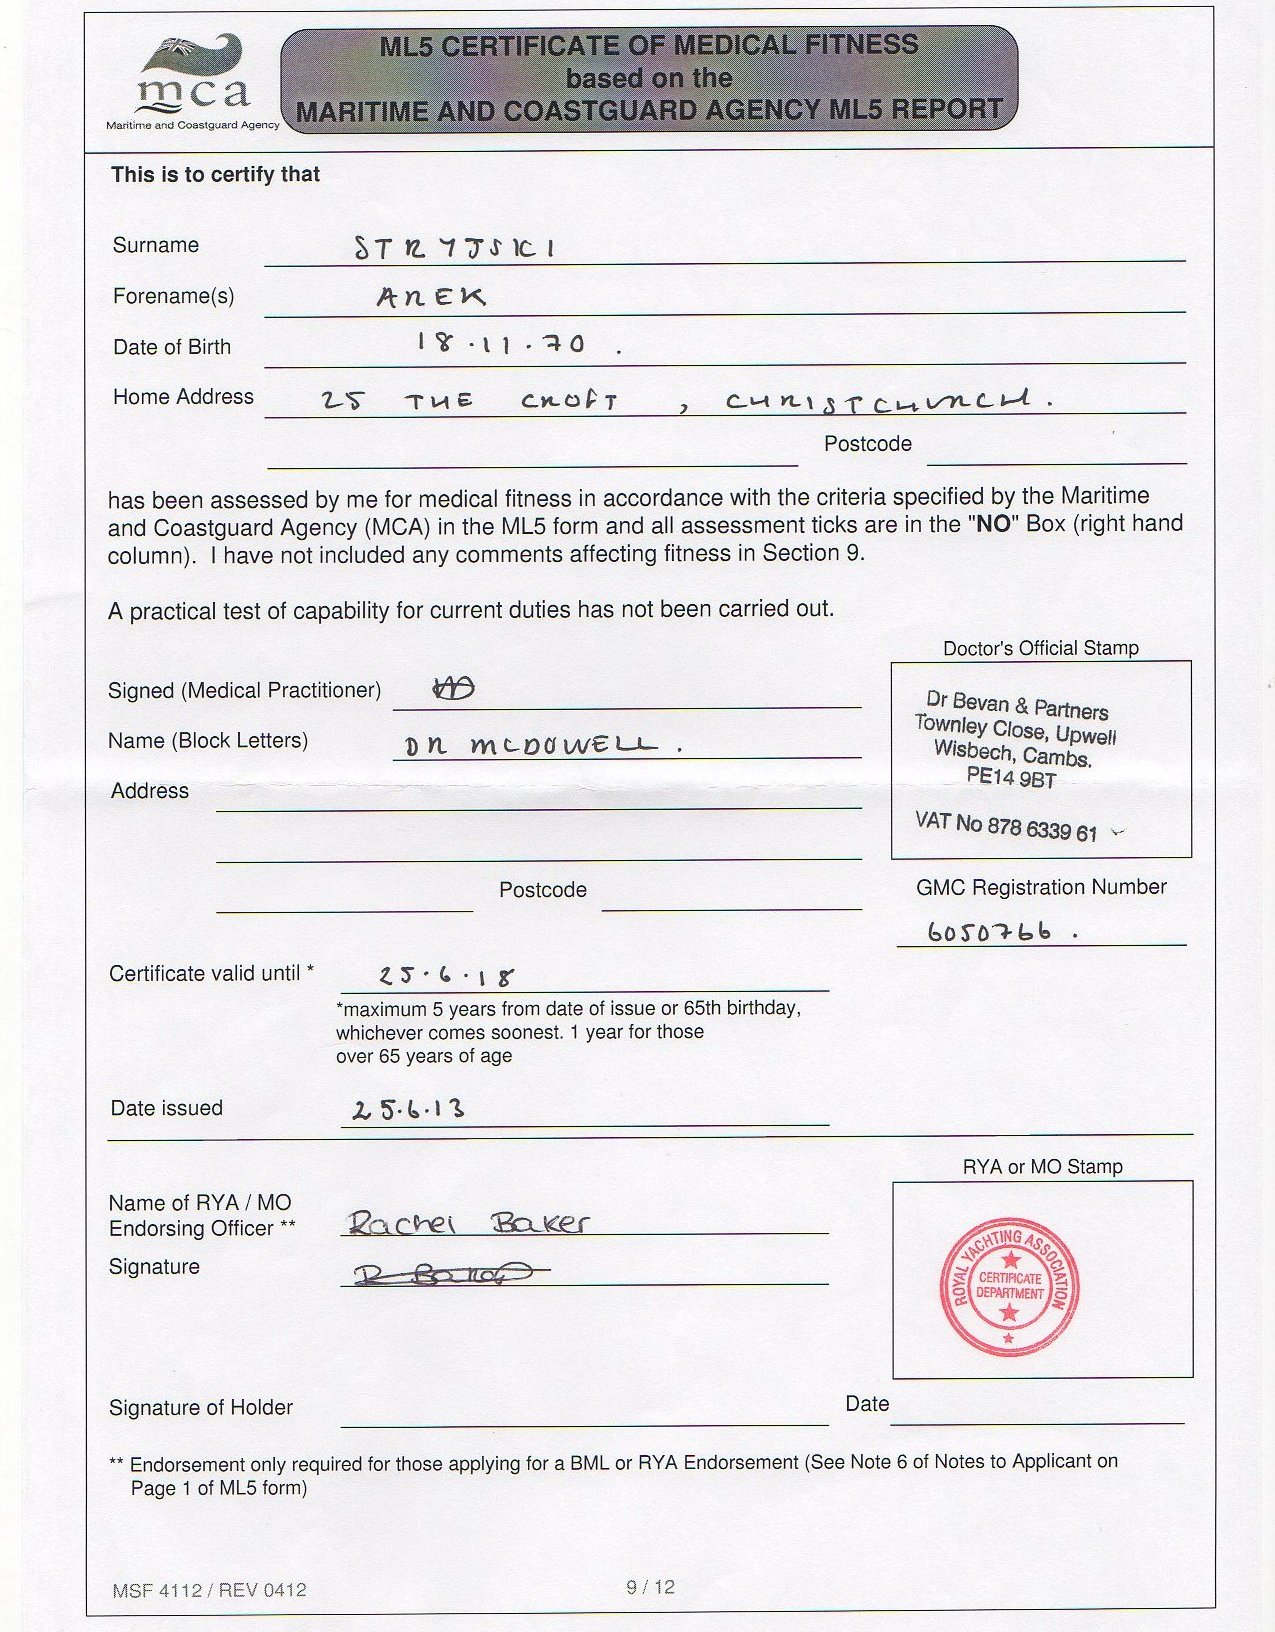 mca
Maritime and Coastguard Agency
ML5 CERTIFICATE OF MEDICAL FITNESS
based on the
MARITIME AND COASTGUARD AGENCY ML5 REPORT
This is to certify that
Surname STRYJSKI
Forename(s) AREK
Date of Birth 18.11.70.
Home Address 25 THE CROFT, CHRISTCHURCH.
Postcode
has been assessed by me for medical fitness in accordance with the criteria specified by the Maritime
and Coastguard Agency (MCA) in the ML5 form and all assessment ticks are in the "NO" Box (right hand
column). I have not included any comments affecting fitness in Section 9.
A practical test of capability for current duties has not been carried out.
Doctor's Official Stamp
Signed (Medical Practitioner)
Name (Block Letters) DR MCDOWELL.
Address
Dr Bevan & Partners
Townley Close, Upwell
Wisbech, Cambs.
PE14 9BT
VAT No 878 6339 61
Postcode
GMC Registration Number
6050766.
Certificate valid until * 25.6.18
*maximum 5 years from date of issue or 65th birthday,
whichever comes soonest. 1 year for those
over 65 years of age
Date issued 25.6.13
RYA or MO Stamp
Name of RYA / MO
Endorsing Officer ** Rachel Baker
Signature R Baker
ROYAL YACHTING ASSOCIATION
CERTIFICATE
DEPARTMENT
Signature of Holder
Date
** Endorsement only required for those applying for a BML or RYA Endorsement (See Note 6 of Notes to Applicant on
Page 1 of ML5 form)
MSF 4112 / REV 0412
9 / 12